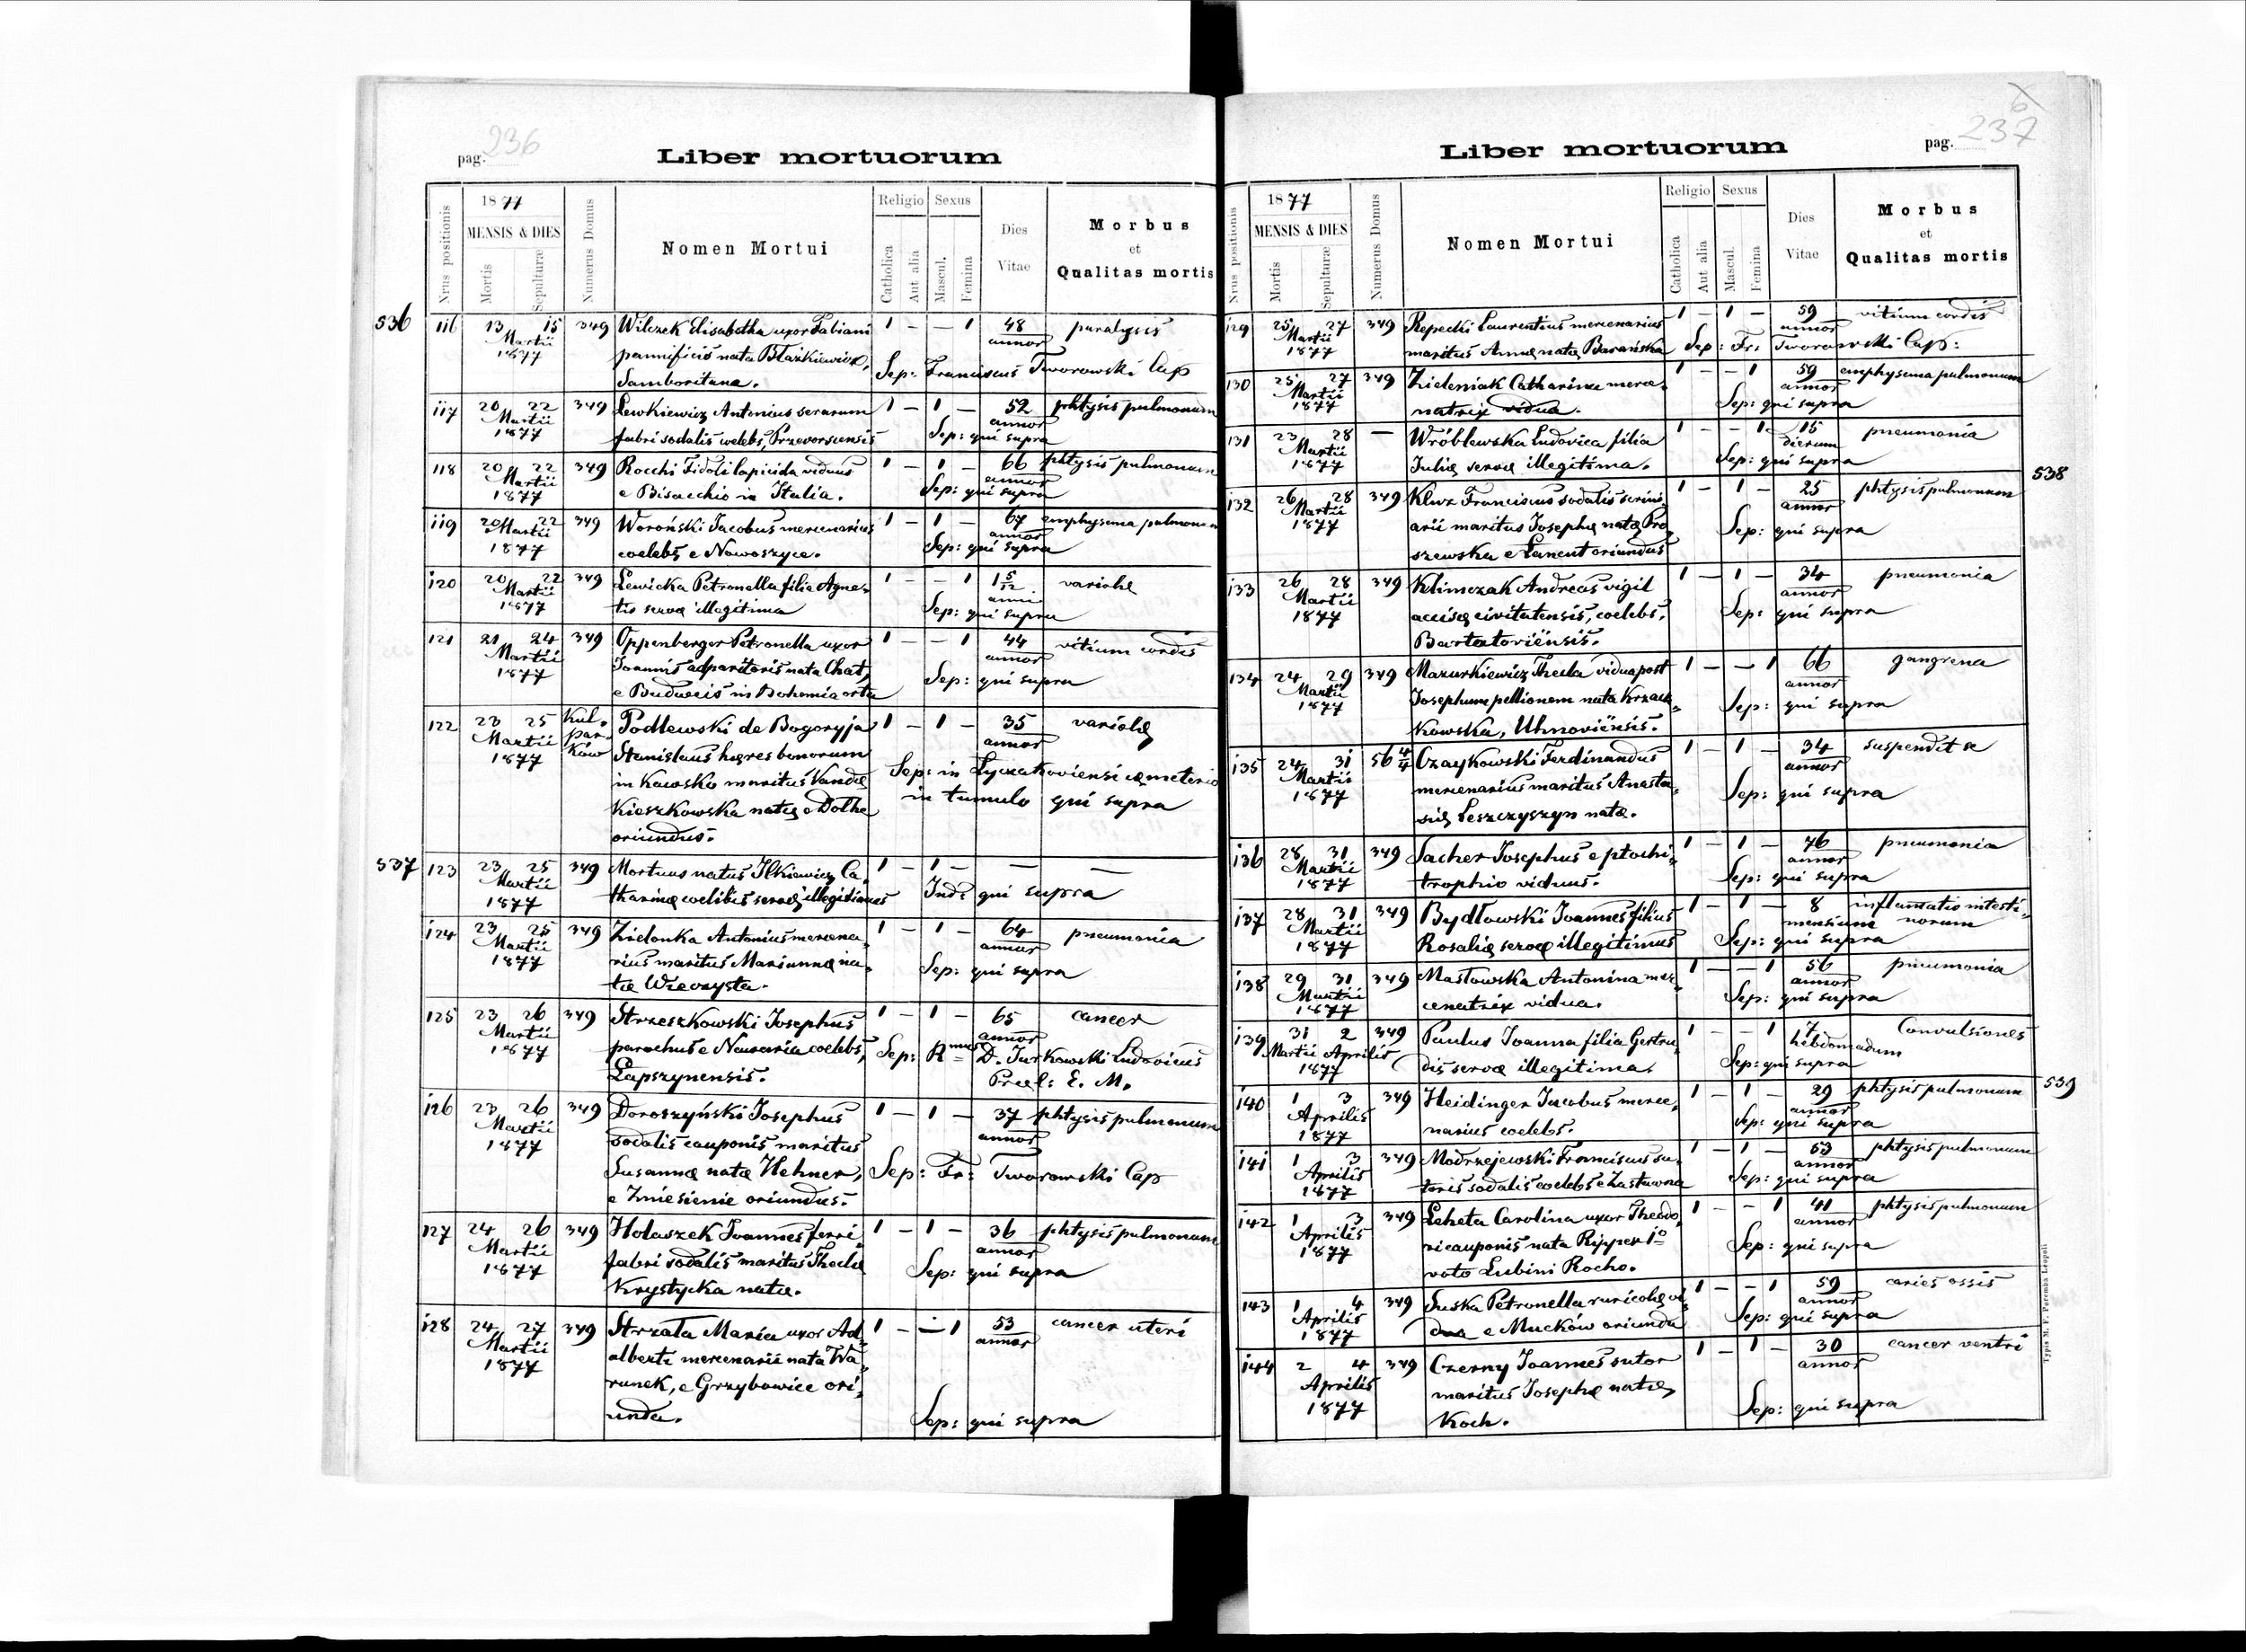 236
pag.
Liber mortuorum
Nrus positionis
1877
MENSIS & DIES
Mortis
Sepulturæ
Numerus Domus
Nomen Mortui
Religio
Catholica
Aut alia
Sexus
Mascul.
Femina
Dies
Vitae
Morbus
et
Qualitas mortis
536 116 13 15 349 Wilczek Elisabetha uxor Fabiani 1 – – 1 48 paralysis
Martii pannificis nata Błażkiewicz, annor
1877 Samboritana. Sep: Franciscus Tworowski Cap
117 20 22 349 Lewkiewicz Antonius serarum 1 – 1 – 52 phtysis pulmonum
Martii fabri sodalis coelebs, Przevorsiensis annor
1877 Sep: qui supra
118 20 22 349 Rocchi Fidoli lapicida viduus 1 – 1 – 66 phtysis pulmonum
Martii e Bisacchio in Italia. annor
1877 Sep: qui supra
119 20 22 349 Woroński Jacobus mercenarius 1 – 1 – 67 emphysema pulmonum
Martii coelebs e Nowoszyce. annor
1877 Sep: qui supra
120 20 22 349 Lewicka Petronella filia Agne- 1 – – 1 1 5/12 variolę
Martii tis servæ illegitima anni
1877 Sep: qui supra
121 21 24 349 Oppenberger Petronella uxor 1 – – 1 44 vitium cordis
Martii Joannis adparitoris nata Chat, annor
1877 e Buduscis in Bohemia orta Sep: qui supra
122 23 25 Kul- Podlewski de Bogoryja 1 – 1 – 35 variolę
Martii par- Stanislaus hæres bonorum annor
1877 ków in Kawsko maritus Vandæ Sep: in Lyczakoviensi cæmeterio
Kieszkowska natę e Dolhe in tumulo qui supra
oriundus.
537 123 23 25 349 Mortuus natus Ilkiewicz Ca- 1 – 1 – — —
Martii tharinæ coelibis servæ illegitimus Ind: qui supra
1877
124 23 25 349 Zielonka Antonius mercena- 1 – 1 – 64 pneumonia
Martii rius maritus Mariannæ na- annor
1877 tæ Wieczysta. Sep: qui supra
125 23 26 349 Strzeszkowski Josephus 1 – 1 – 65 cancer
Martii parochus e Nawaria coelebs, annor
1877 Łapszynensis. Sep: Rmus D. Jurkowski Ludovicus
Præl: E. M.
126 23 26 349 Doroszyński Josephus 1 – 1 – 37 phtysis pulmonum
Martii sodalis cauponis maritus annor
1877 Susannæ natæ Hehner, Sep: Fr: Tworowski Cap
e Zniesienie oriundus.
127 24 26 349 Holaszek Joannes ferri- 1 – 1 – 36 phtysis pulmonum
Martii fabri sodalis maritus Theclæ annor
1877 Krystycka natæ. Sep: qui supra
128 24 27 349 Strzała Maria uxor Ad- 1 – – 1 53 cancer uteri
Martii alberti mercenarii nata Wa- annor
1877 runek, e Grzybowice ori-
unda. Sep: qui supra
6
237
pag.
Liber mortuorum
Nrus positionis
1877
MENSIS & DIES
Mortis
Sepulturæ
Numerus Domus
Nomen Mortui
Religio
Catholica
Aut alia
Sexus
Mascul.
Femina
Dies
Vitae
Morbus
et
Qualitas mortis
129 25 27 349 Repecki Laurentius mercenarius 1 – 1 – 59 vitium cordis
Martii maritus Annæ natæ Barańska annor
1877 Sep: Fr: Tworowski Cap:
130 25 27 349 Zieleniak Catharina merce- 1 – – 1 59 emphysema pulmonum
Martii natrix vidua. annor
1877 Sep: qui supra
131 23 28 — Wróblewska Ludovica filia 1 – – 1 15 pneumonia
Martii Julię servæ illegitima. dierum
1877 Sep: qui supra
538
132 26 28 349 Kluz Franciscus sodalis scrini- 1 – 1 – 25 phtysis pulmonum
Martii arii maritus Josephæ natæ Pro- annor
1877 szewska e Łancut oriundus Sep: qui supra
133 26 28 349 Klimczak Andreas vigil 1 – 1 – 34 pneumonia
Martii accisę civitatensis, coelebs, annor
1877 Bartatoviensis. Sep: qui supra
134 24 29 349 Mazurkiewicz Thecla vidua post 1 – – 1 66 gangrena
Martii Josephum pellionem nata Krzacz- annor
1877 kowska, Uhnoviensis. Sep: qui supra
135 24 31 56 4/4 Czaykowski Ferdinandus 1 – 1 – 34 suspendit se
Martii mercenarius maritus Anasta- annor
1877 się Leszczyszyn natæ. Sep: qui supra
136 28 31 349 Sacher Josephus e ptochi- 1 – 1 – 76 pneumonia
Martii trophio viduus. annor
1877 Sep: qui supra
137 28 31 349 Bydłowski Joannes filius 1 – 1 – 8 inflamatio intesti-
Martii Rosalię servæ illegitimus mensium norum
1877 Sep: qui supra
138 29 31 349 Masłowska Antonina mer- 1 – – 1 56 pneumonia
Martii cenatrix vidua. annor
1877 Sep: qui supra
139 31 2 349 Paulus Joanna filia Gertru- 1 – – 1 7 Convulsiones
Martii Aprilis dis servæ illegitima. hebdomadum
1877 Sep: qui supra
539
140 1 3 349 Heidinger Jacobus merce- 1 – 1 – 29 phtysis pulmonum
Aprilis narius coelebs. annor
1877 Sep: qui supra
141 1 3 349 Modrzejewski Franciscus su- 1 – 1 – 53 phtysis pulmonum
Aprilis toris sodalis coelebs e Zastawna annor
1877 Sep: qui supra
142 1 3 349 Leheta Carolina uxor Theodo- 1 – – 1 41 phtysis pulmonum
Aprilis ri cauponis nata Rypper 1º annor
1877 voto Lubini Rocho. Sep: qui supra
143 1 4 349 Suska Petronella ruricolę vi- 1 – – 1 59 caries ossis
Aprilis dua e Mucków oriunda annor
1877 Sep: qui supra
144 2 4 349 Czerny Joannes sutor 1 – 1 – 30 cancer ventri
Aprilis maritus Josephæ natæ annor
1877 Koch. Sep: qui supra
Typis M. F. Poremba Leopoli